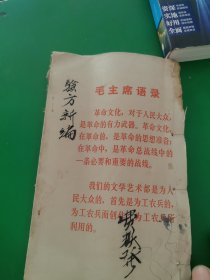 资深
实施
好用
全面
驗方新编
毛主席语录
革命文化，对于人民大众，
是革命的有力武器。革命文化，
在革命前，是革命的思想准备；
在革命中，是革命总战线中的
一条必要和重要的战线。
我们的文学艺术都是为人
民大众的，首先是为工农兵的，
为工农兵而创
为工农兵所
利用的。